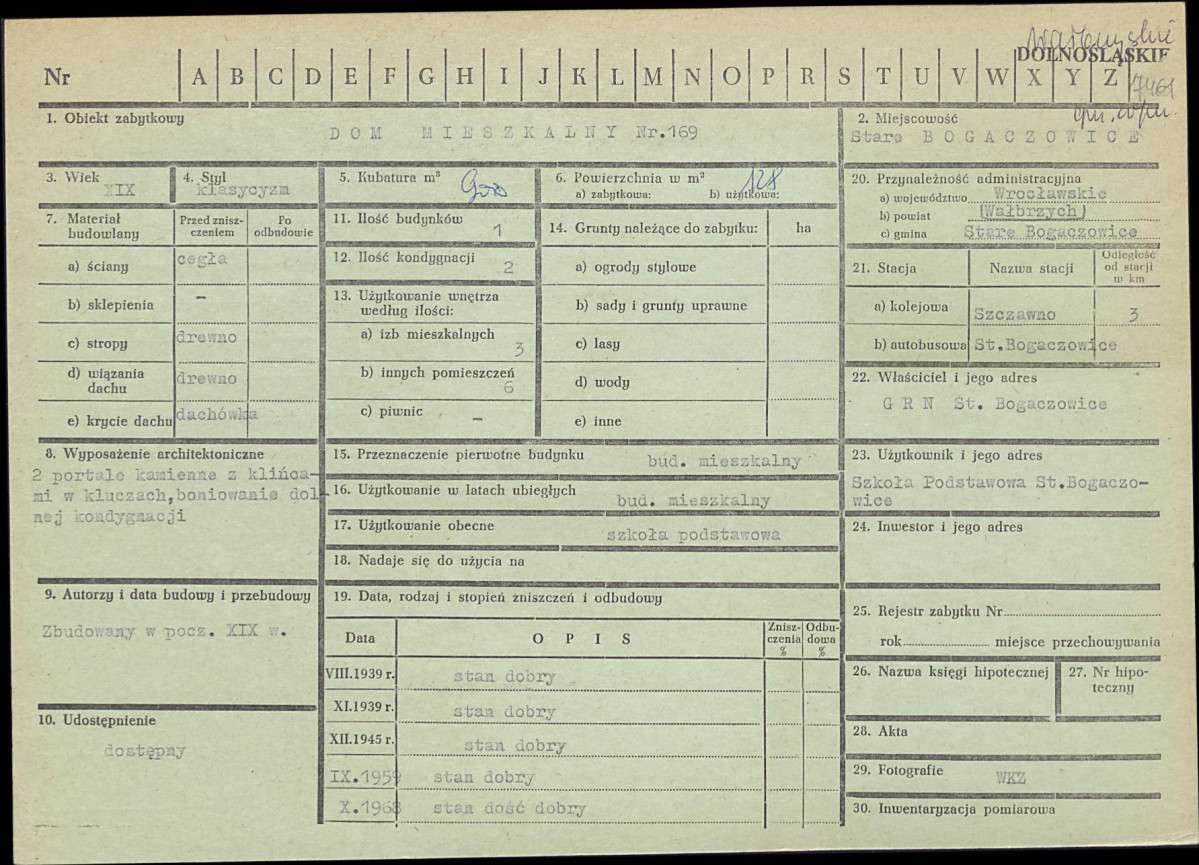 DOLNOŚLĄSKIE
Nr A B C D E F G H I J K L M N O P R S T U V W X Y Z
7461
gm. w/m.
1. Obiekt zabytkowy
DOM MIESZKALNY Nr.169
2. Miejscowość
Stare BOGACZOWICE
3. Wiek
XIX
4. Styl
klasycyzm
5. Kubatura m³
6. Powierzchnia w m²
a) zabytkowa: b) użytkowa:
128
7. Materiał budowlany
Przed zniszczeniem
Po odbudowie
a) ściany cegła
b) sklepienia –
c) stropy drewno
d) wiązania dachu drewno
e) krycie dachu dachówka
8. Wyposażenie architektoniczne
2 portale kamienne z klińca-
mi w kluczach,boniowanie dol-
nej kondygnacji
9. Autorzy i data budowy i przebudowy
Zbudowany w pocz. XIX w.
10. Udostępnienie
dostępny
11. Ilość budynków
1
12. Ilość kondygnacji
2
13. Użytkowanie wnętrza
według ilości:
a) izb mieszkalnych
3
b) innych pomieszczeń
6
c) piwnic –
14. Grunty należące do zabytku: ha
a) ogrody stylowe
b) sady i grunty uprawne
c) lasy
d) wody
e) inne
15. Przeznaczenie pierwotne budynku bud. mieszkalny
16. Użytkowanie w latach ubiegłych bud. mieszkalny
17. Użytkowanie obecne szkoła podstawowa
18. Nadaje się do użycia na
19. Data, rodzaj i stopień zniszczeń i odbudowy
Data OPIS Zniszczenia % Odbudowa %
VIII.1939 r. stan dobry
XI.1939 r. stan dobry
XII.1945 r. stan dobry
IX.1959 stan dobry
X.1968 stan dość dobry
20. Przynależność administracyjna
a) województwo Wrocławskie
b) powiat (Wałbrzych)
c) gmina Stare Bogaczowice
21. Stacja Nazwa stacji Odległość od stacji w km
a) kolejowa Szczawno 3
b) autobusowa St.Bogaczowice
22. Właściciel i jego adres
GRN St. Bogaczowice
23. Użytkownik i jego adres
Szkoła Podstawowa St.Bogaczo-
wice
24. Inwestor i jego adres
25. Rejestr zabytku Nr
rok miejsce przechowywania
26. Nazwa księgi hipotecznej
27. Nr hipo-
teczny
28. Akta
29. Fotografie WKZ
30. Inwentaryzacja pomiarowa